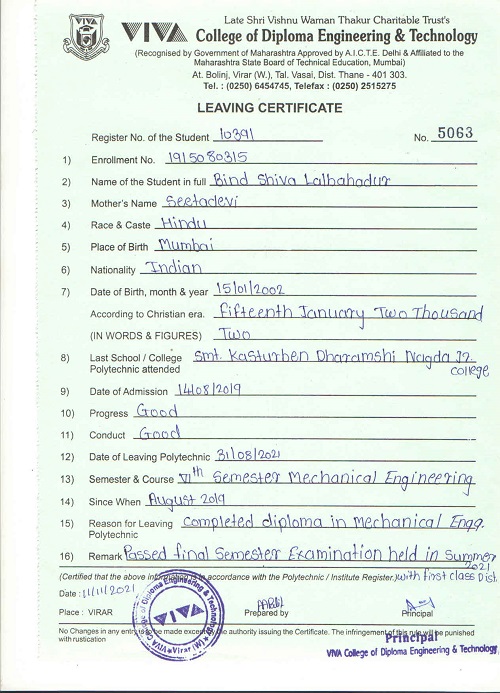 Late Shri Vishnu Waman Thakur Charitable Trust's
VIVA College of Diploma Engineering & Technology
(Recognised by Government of Maharashtra Approved by A.I.C.T.E. Delhi & Affiliated to the
Maharashtra State Board of Technical Education, Mumbai)
At. Bolinj, Virar (W.), Tal. Vasai, Dist. Thane - 401 303.
Tel. : (0250) 6454745, Telefax : (0250) 2515275
LEAVING CERTIFICATE
Register No. of the Student 10391 No. 5063
1) Enrollment No. 1915080315
2) Name of the Student in full Bind Shiva Lalbahadur
3) Mother's Name Seetadevi
4) Race & Caste Hindu
5) Place of Birth Mumbai
6) Nationality Indian
7) Date of Birth, month & year 15/01/2002
According to Christian era. Fifteenth January Two Thousand
(IN WORDS & FIGURES) Two
8) Last School / College Smt. Kasturben Dharamshi Nagda Jr.
Polytechnic attended college
9) Date of Admission 14/08/2019
10) Progress Good
11) Conduct Good
12) Date of Leaving Polytechnic 31/08/2021
13) Semester & Course VIth Semester Mechanical Engineering
14) Since When August 2019
15) Reason for Leaving Completed diploma in Mechanical Engg.
Polytechnic
16) Remark Passed final Semester Examination held in Summer
2021
(Certified that the above information is in accordance with the Polytechnic / Institute Register.) with first class Dist.
Date : 11/11/2021
Place : VIRAR Prepared by Principal
VIVA College of Diploma Engineering & Technology
VIVA
Virar (W)
No Changes in any entry is to be made except by the authority issuing the Certificate. The infringement of this rule will be punished
with rustication
Principal
VIVA College of Diploma Engineering & Technology